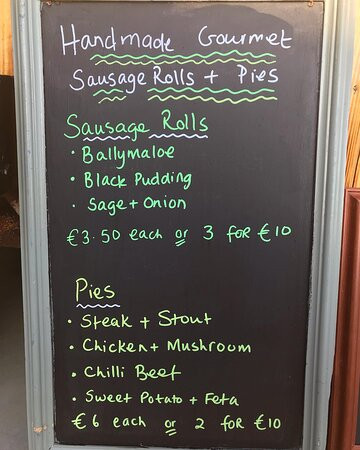 Handmade Gourmet
Sausage Rolls + Pies
Sausage Rolls
• Ballymaloe
• Black Pudding
• Sage + Onion
€3.50 each or 3 for €10
Pies
• Steak + Stout
• Chicken + Mushroom
• Chilli Beef
• Sweet Potato + Feta
€6 each or 2 for €10